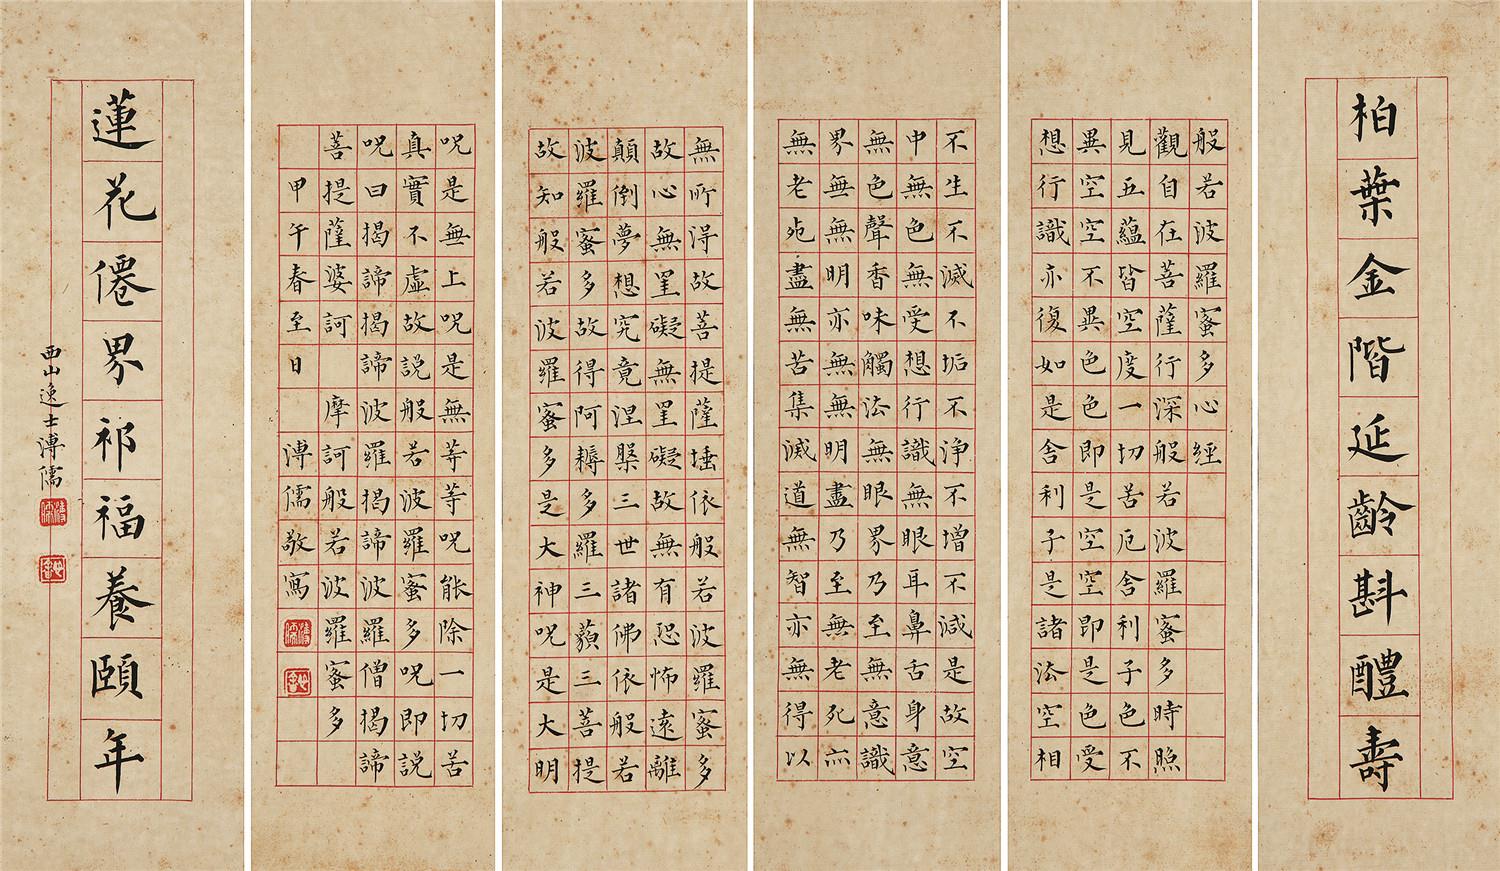 柏葉金階延齡斟醴壽
般若波羅蜜多心經
觀自在菩薩行深般若波羅蜜多時照
見五蘊皆空度一切苦厄舍利子色不
異空空不異色色即是空空即是色受
想行識亦復如是舍利子是諸法空相
不生不滅不垢不淨不增不減是故空
中無色無受想行識無眼耳鼻舌身意
無色聲香味觸法無眼界乃至無意識
界無無明亦無無明盡乃至無老死亦
無老死盡無苦集滅道無智亦無得以
無所得故菩提薩埵依般若波羅蜜多
故心無罣礙無罣礙故無有恐怖遠離
顛倒夢想究竟涅槃三世諸佛依般若
波羅蜜多故得阿耨多羅三藐三菩提
故知般若波羅蜜多是大神呪是大明
呪是無上呪是無等等呪能除一切苦
真實不虛故説般若波羅蜜多呪即説
呪曰揭諦揭諦波羅揭諦波羅僧揭諦
菩提薩婆訶 摩訶般若波羅蜜多
甲午春至日 溥儒敬寫
蓮花僊界祁福養頤年
西山逸士溥儒